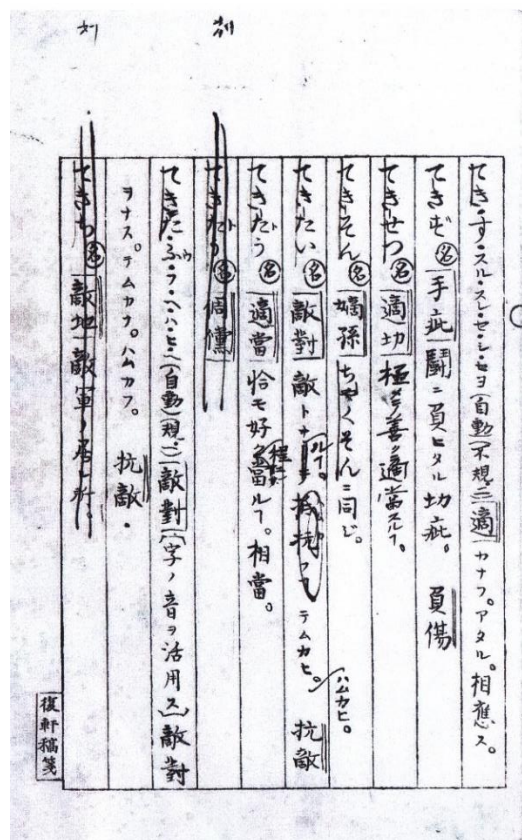 てき・す・スル・スレ・セ・シ・セヨ(自動)(不規三)適 カナフ。アタル。相應ス。
てきず 名 手疵 鬪ニ負ヒタル切疵。 負傷
てきせつ 名 適切 極メテ善ク適當スル丁。
てきそん 名 嫡孫 ちやくそんニ同じ。
てきたい 名 敵對 敵トナル丁。 テムカヒ。ハムカヒ。 抗敵
てきたう 名 適當 恰モ好ク當ル丁。相當。
てきたう 名 倜儻
てきた・ふ・フ・ヘ・ハ・ヒ・ヘ(自動)(規・三)敵對(字ノ音ヲ活用ス)敵對
ヲナス。テムカフ。ハムカフ。 抗敵・
てきち 名 敵地 敵軍ノ居ル所。
復軒稿箋